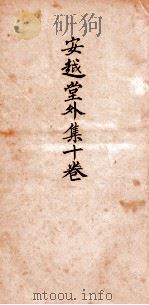 安越堂外集十卷
mtoou.info